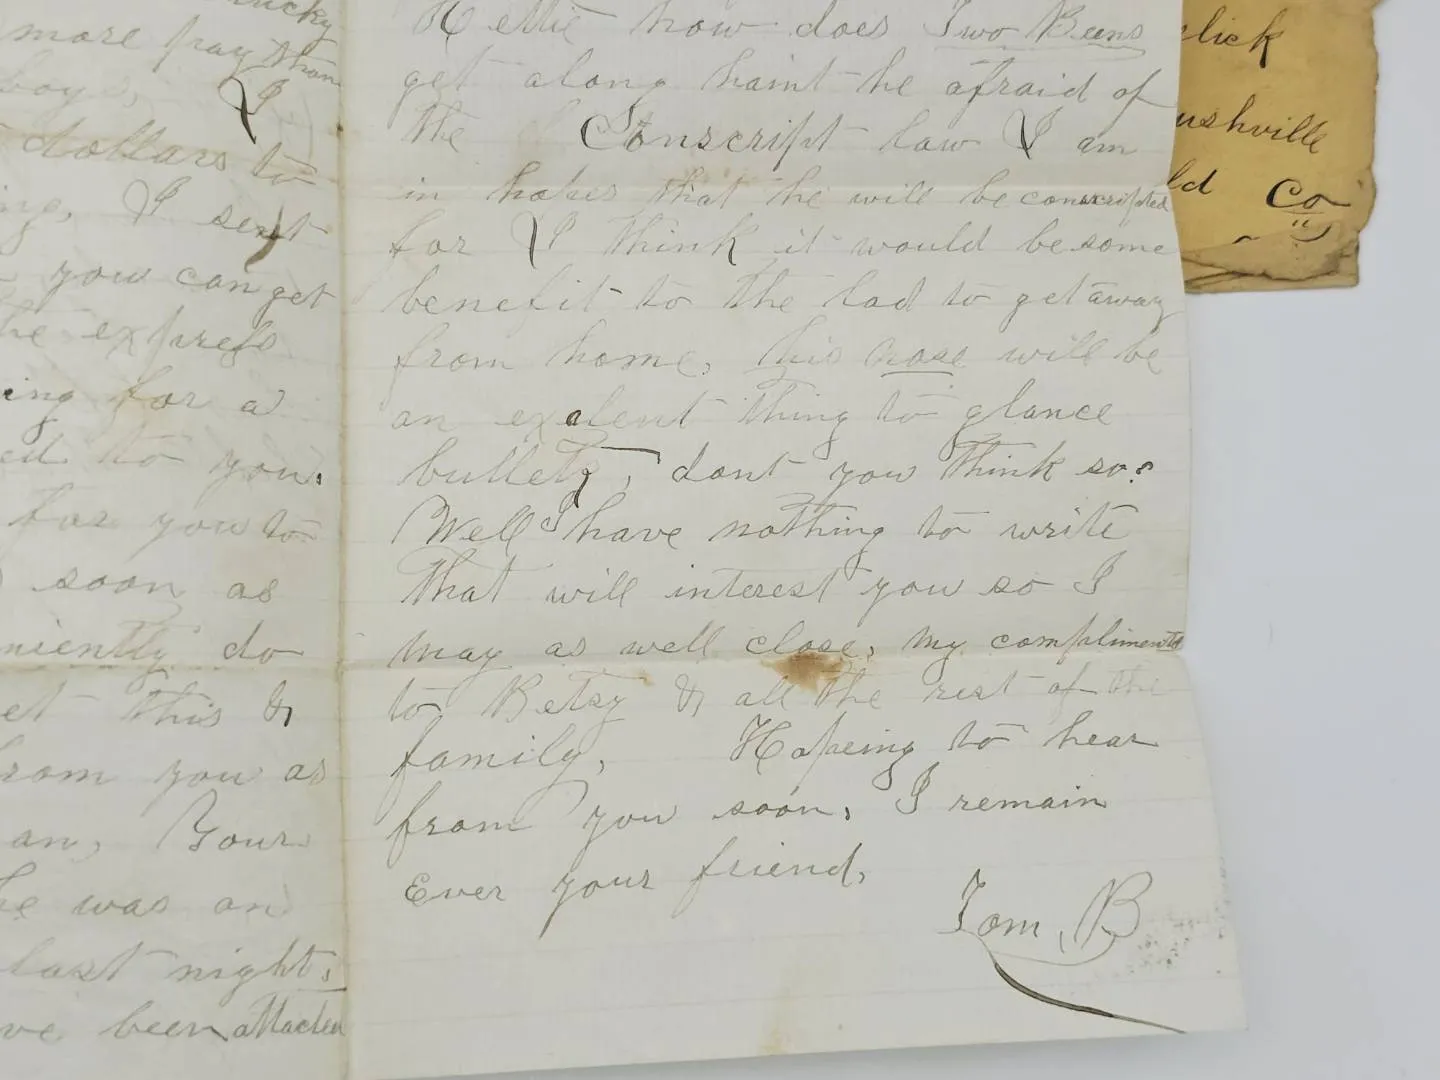 more pay than
boys, I
dollars to
ng, I sent
you can get
he express
ing for a
ed to you.
for you to
soon as
niently do
et this &
from you as
an, Your
he was on
last night.
ve been
Hettie how does Two Beens
get along haint he afraid of
the Conscript law I am
in hopes that he will be conscripted
for I think it would be some
benefit to the lad to get away
from home, his nose will be
an exelent thing to glance
bullets, dont you think so?
Well I have nothing to write
that will interest you so I
may as well close, my compliments
to Betsy & all the rest of the
family, Hopeing to hear
from you soon, I remain
Ever your friend,
Tom, B
lick
ushville
ld Co